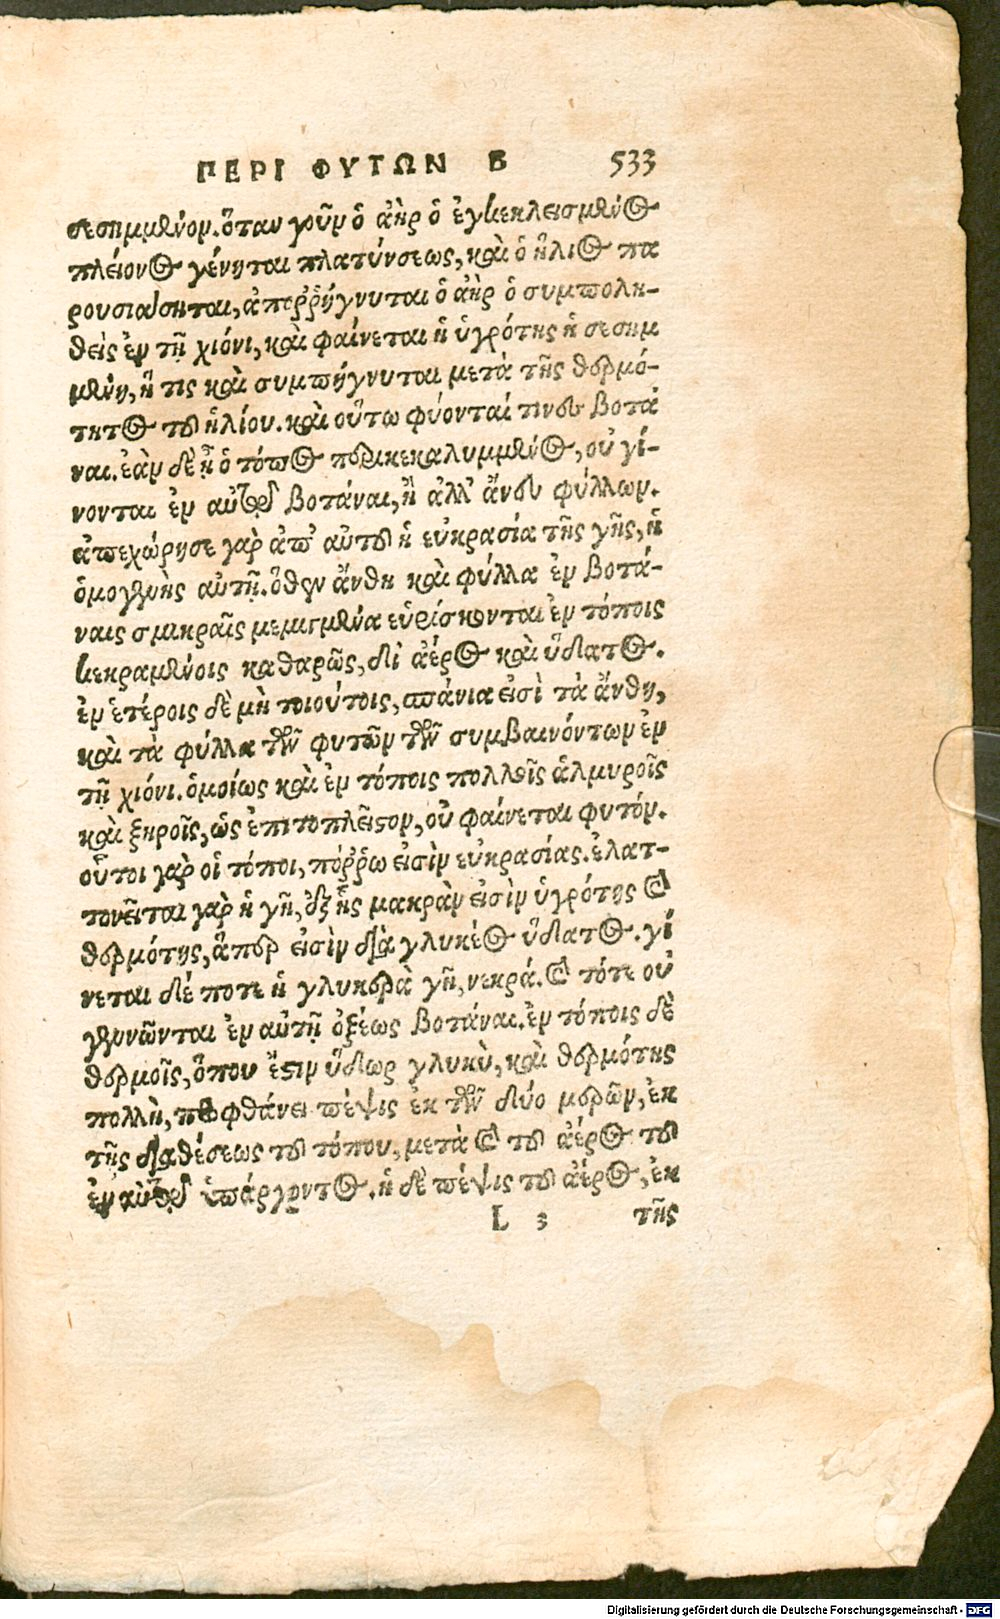 ΠΕΡΙ ΦΥΤΩΝ Β 533
σεσημμένον. ὅταν γοῦν ὁ ἀὴρ ὁ ἐγκεκλεισμένος
πλείονος γένηται πλατύνσεως, καὶ ὁ ἥλιος πα
ρουσιάσηται, ἀπορῥήγνυται ὁ ἀὴρ ὁ συμπολη-
θεὶς ἐν τῇ χιόνι, καὶ φαίνεται ἡ ὑγρότης ἡ σεσημ
μένη, ἥ τις καὶ συμπήγνυται μετὰ τῆς θερμό-
τητος τοῦ ἡλίου. καὶ οὕτω φύονταί τινες βοτά
ναι. ἐὰν δὲ ᾖ ὁ τόπος περικεκαλυμμένος, οὐ γί-
νονται ἐν αὐτῷ βοτάναι, ἢ ἀλλ' ἄνευ φύλλων.
ἀπεχώρησε γὰρ ἀπ' αὐτοῦ ἡ εὐκρασία τῆς γῆς, ἡ
ὁμογενὴς αὐτῇ. ὅθεν ἄνθη καὶ φύλλα ἐν βοτά-
ναις σμικραῖς μεμιγμένα εὑρίσκονται ἐν τόποις
κεκραμένοις καθαρῶς, δι' ἀέρος καὶ ὕδατος.
ἐν ἑτέροις δὲ μὴ τοιούτοις, σπάνια εἰσὶ τὰ ἄνθη,
καὶ τὰ φύλλα τῶν φυτῶν τῶν συμβαινόντων ἐν
τῇ χιόνι. ὁμοίως καὶ ἐν τόποις πολλοῖς ἁλμυροῖς
καὶ ξηροῖς, ὡς ἐπιτοπλεῖστον, οὐ φαίνεται φυτόν.
οὗτοι γὰρ οἱ τόποι, πόῤῥω εἰσὶν εὐκρασίας. ἐλατ-
τονεῖται γὰρ ἡ γῆ, ἐξ ἧς μακρὰν εἰσὶν ὑγρότης καὶ
θερμότης, ἅπερ εἰσὶν διὰ γλυκέος ὕδατος. γί
νεται δέ ποτε ἡ γλυκερὰ γῆ, νεκρά. καὶ τότε οὐ
γεννῶνται ἐν αὐτῇ ὀξέως βοτάναι. ἐν τόποις δὲ
θερμοῖς, ὅπου ἔστιν ὕδωρ γλυκὺ, καὶ θερμότης
πολλὴ, προφθάνει πέψις ἐκ τῶν δύο μερῶν, ἐκ
τῆς διαθέσεως τοῦ τόπου, μετὰ καὶ τοῦ ἀέρος τοῦ
ἐν αὐτῷ ὑπάρχοντος. ἡ δὲ πέψις τοῦ ἀέρος, ἐκ
L 3 τῆς
Digitalisierung gefördert durch die Deutsche Forschungsgemeinschaft - DFG